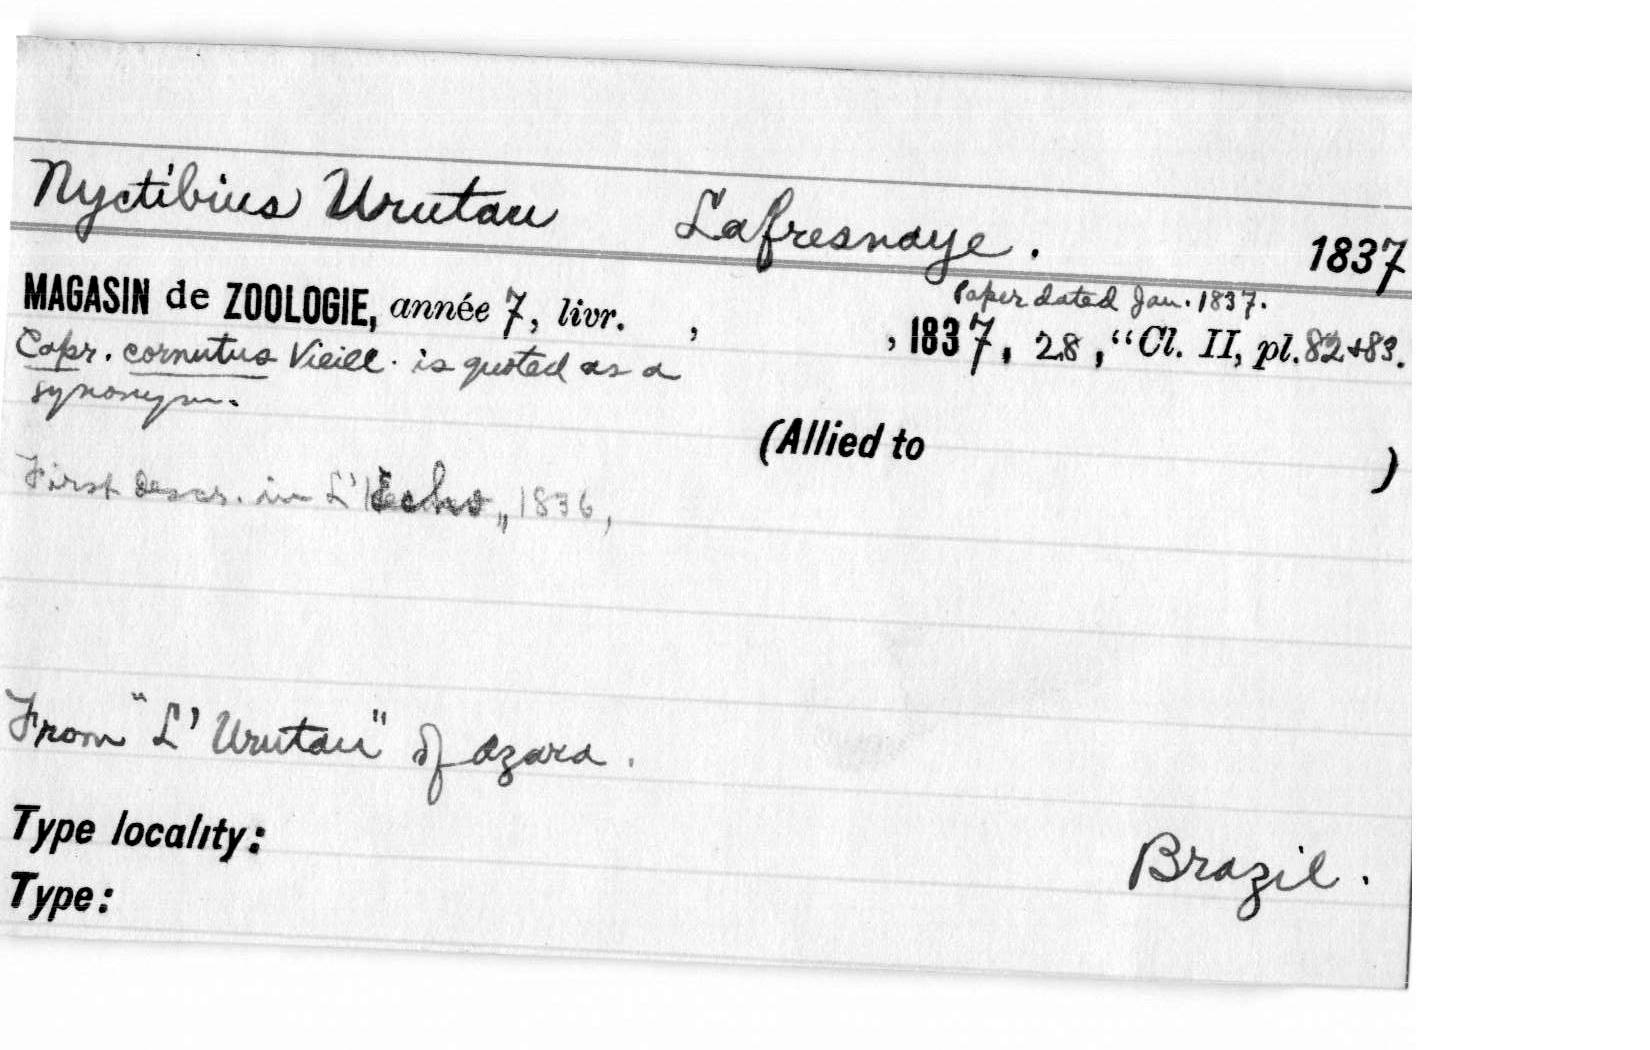 Nyctibius Urutau Lafresnaye. 1837
Paper dated Jan. 1837.
MAGASIN de ZOOLOGIE, année 7, livr. , , 1837, 28, "Cl. II, pl. 82+83.
Capr. cornutus Vieill. is quoted as a
synonym.
(Allied to )
First descr. in L'Echo,, 1836,
From "L'Urutau" of Azara.
Type locality: Brazil.
Type: